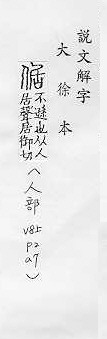 說文解字
大徐本
倨
不遜也从人
居聲居御切
(人部
V8上
P2
a7)